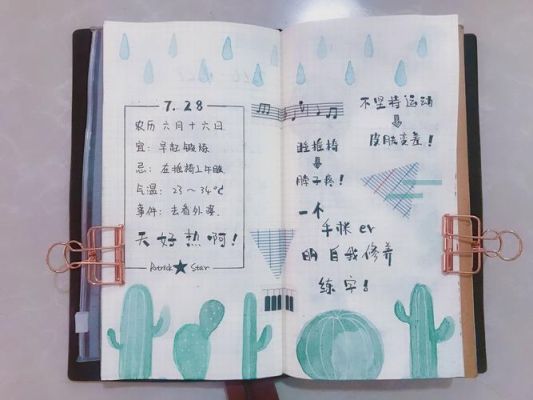 7.28
农历 六月十六日
宜: 早起锻炼
忌: 在椅上午睡
气温: 23～34℃
事件: 去看外婆
天好热啊!
Patrick ★ Star
不坚持运动
皮肤变差!
睡椅
脖子疼!
一个
手帐er
的自我修养
练字!